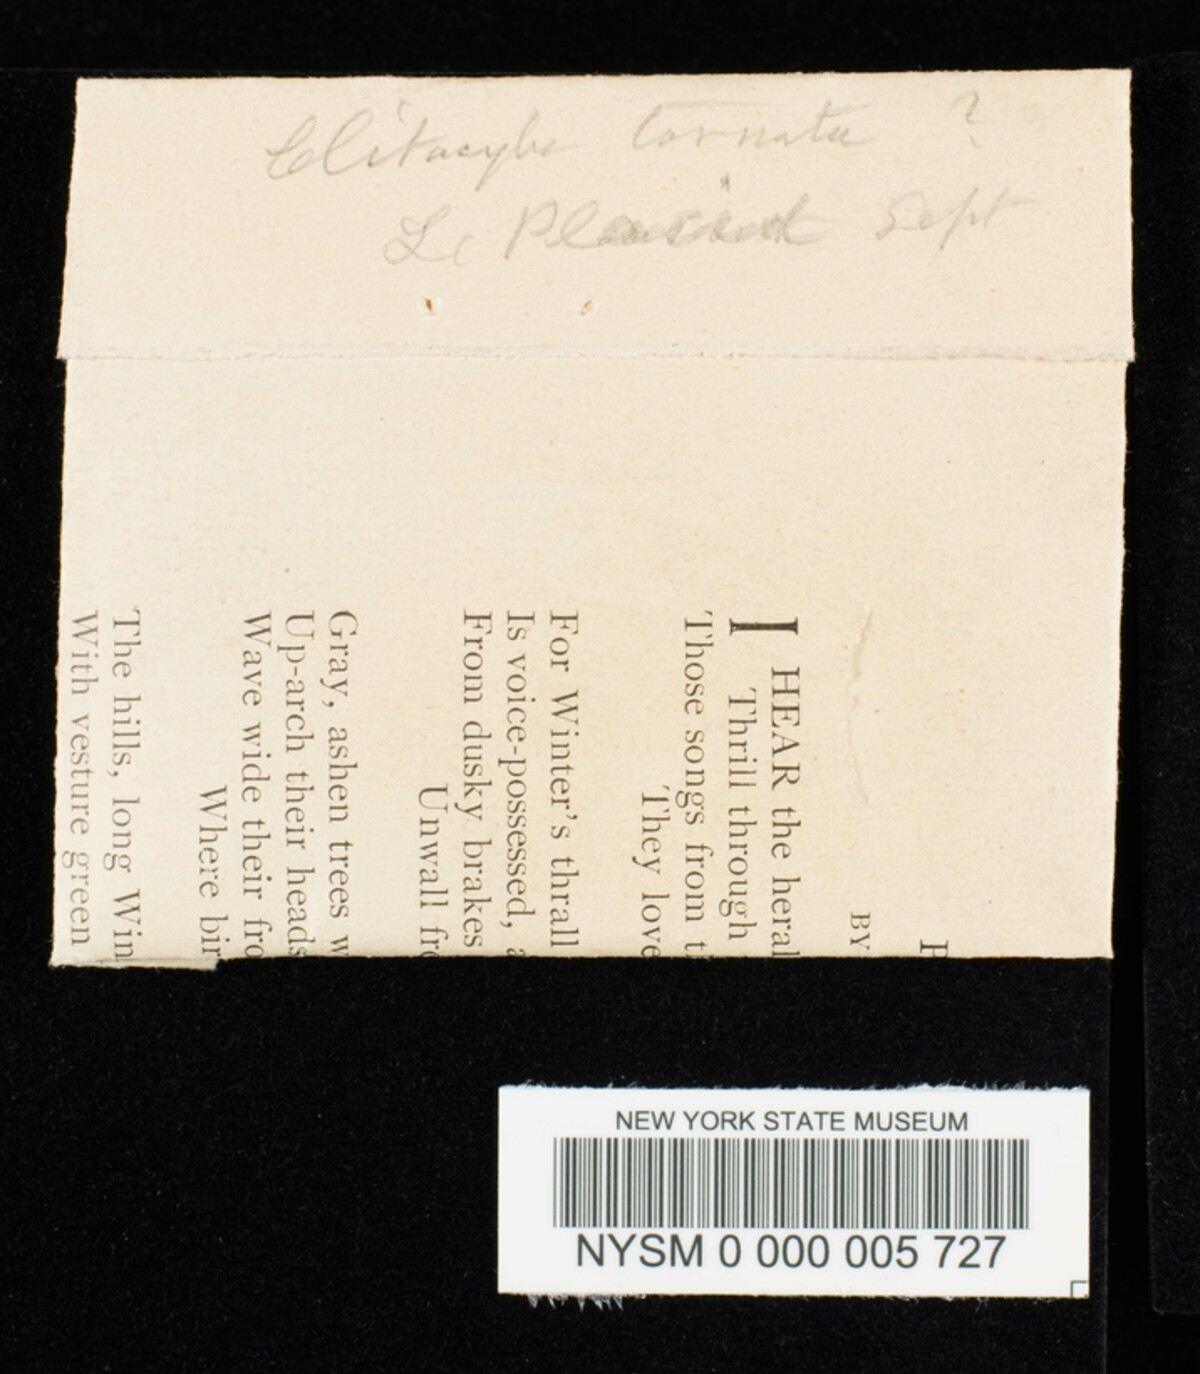 Clitocybe tornata ?
L. Placid Sept
P
BY
I HEAR the heral
Thrill through
Those songs from th
They love
For Winter's thrall
Is voice-possessed, a
From dusky brakes
Unwall fro
Gray, ashen trees w
Up-arch their heads
Wave wide their fro
Where bir
The hills, long Win
With vesture green
NEW YORK STATE MUSEUM
NYSM 0 000 005 727